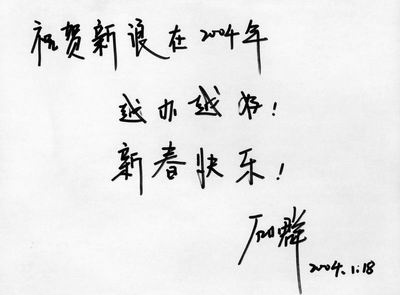 祝贺新浪在2004年
越办越好！
新春快乐！
2004.1.18